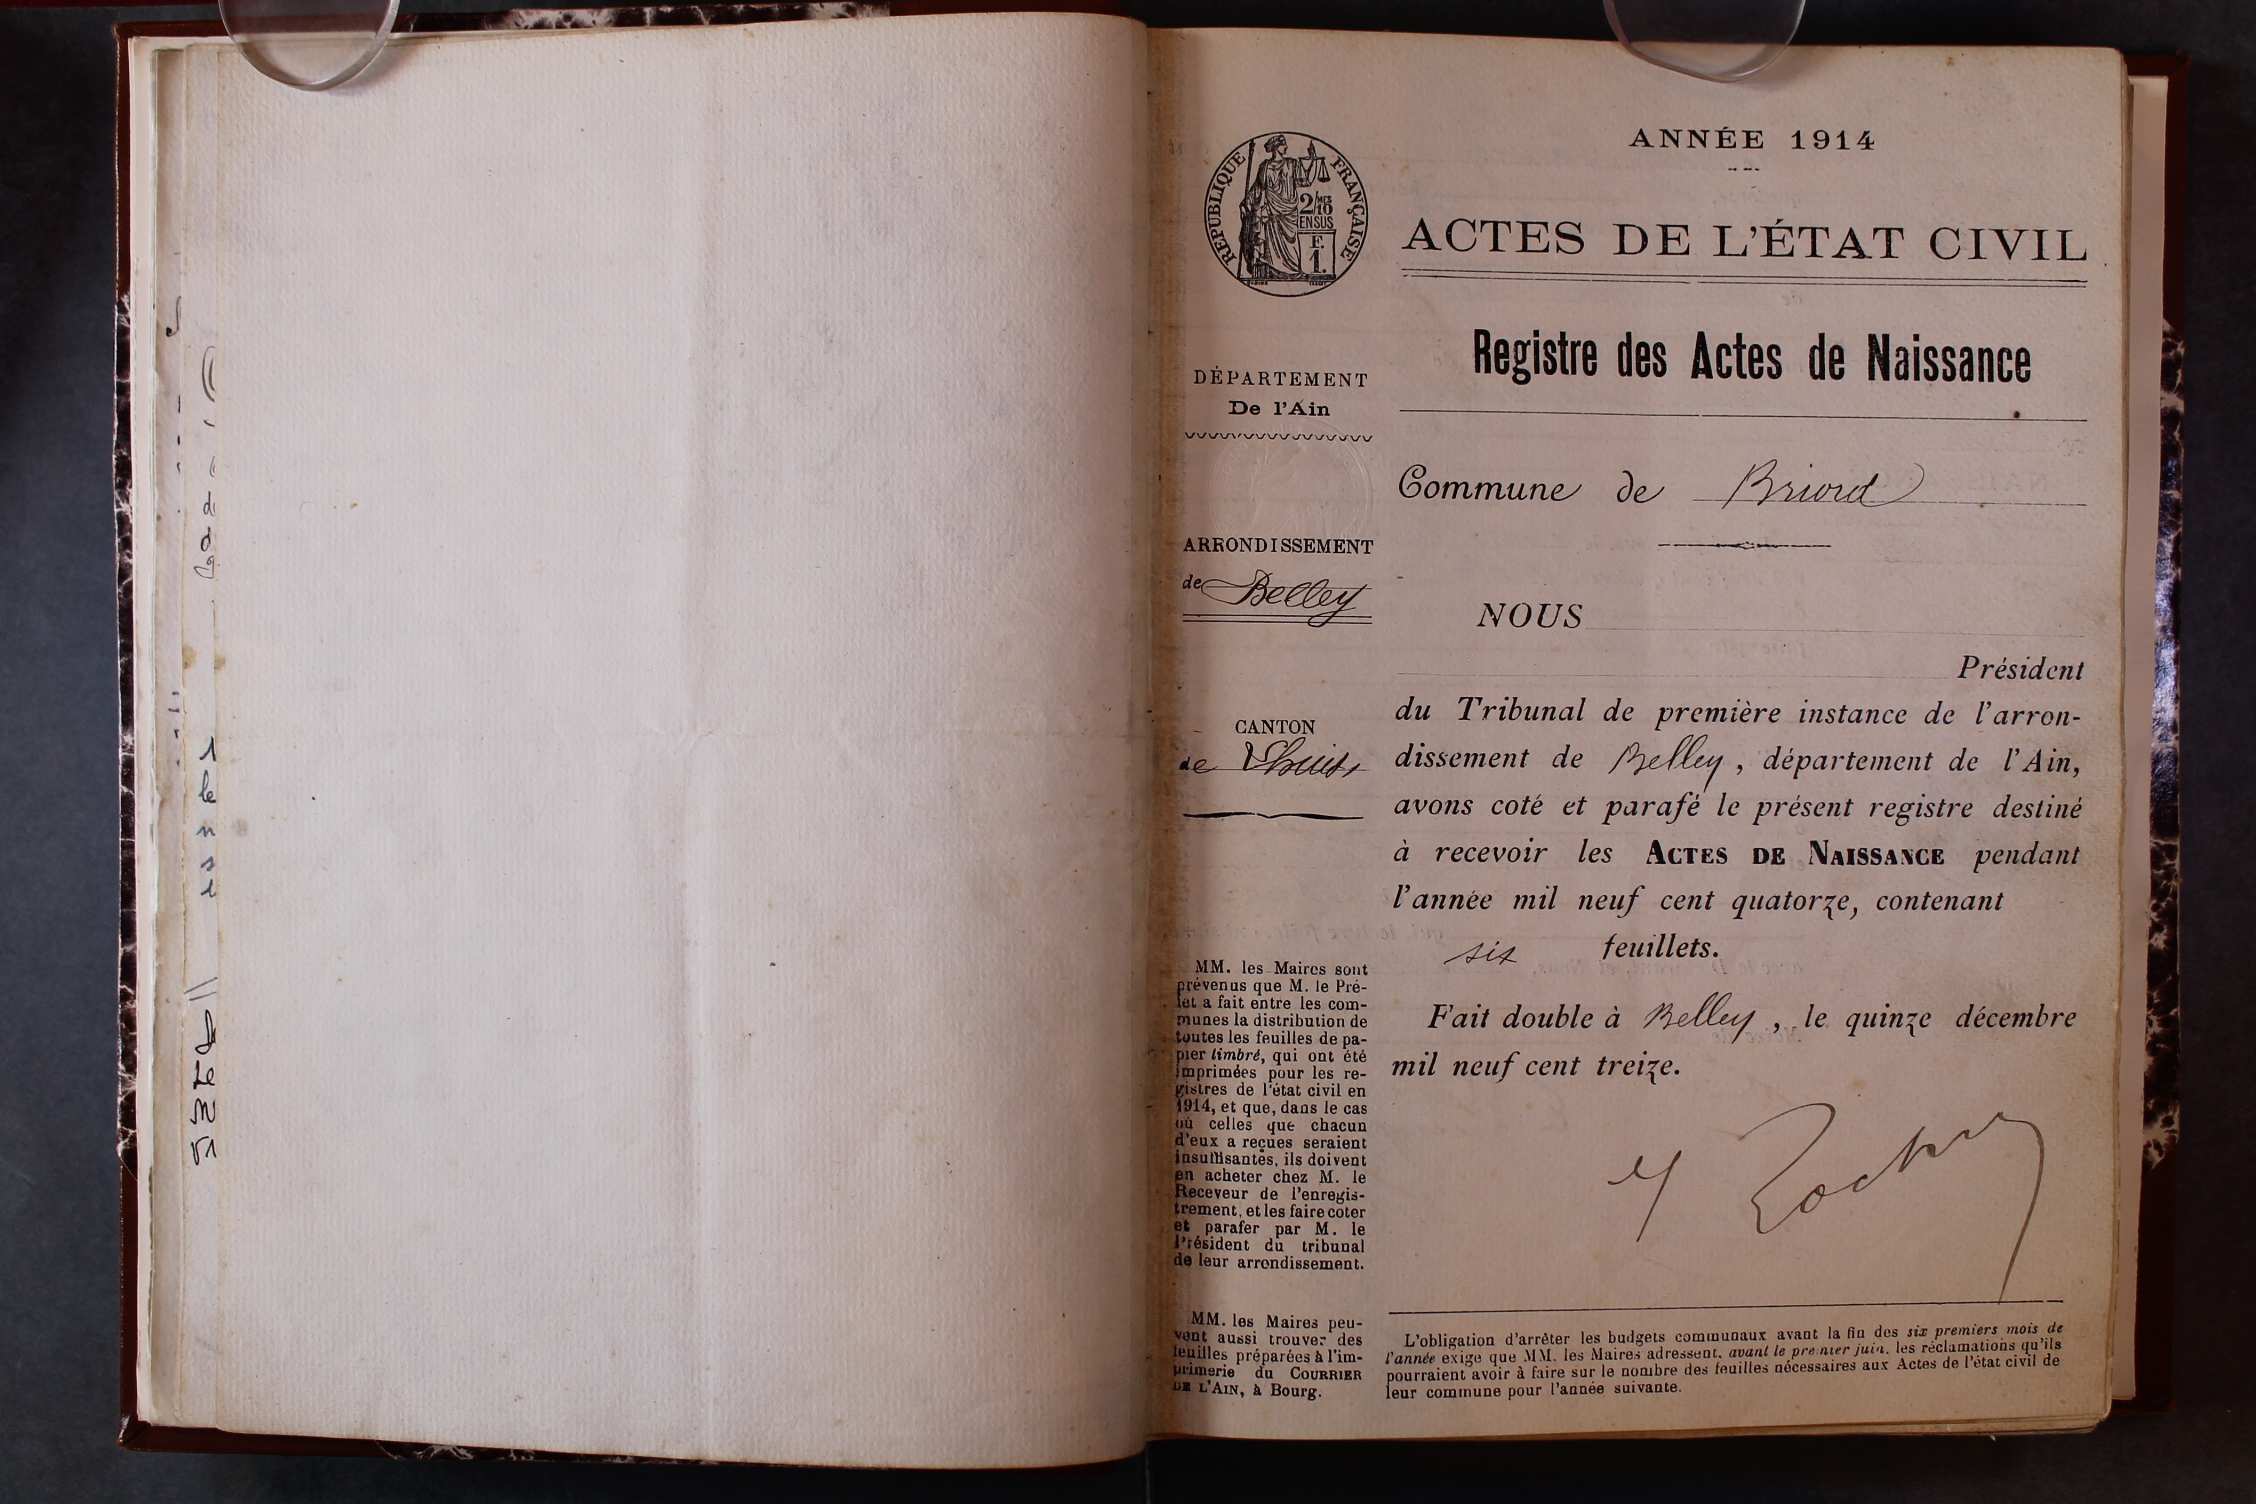 ANNÉE 1914
RÉPUBLIQUE FRANÇAISE
2/10 MES
EN SUS
F.
1.
ACTES DE L'ÉTAT CIVIL
Registre des Actes de Naissance
DÉPARTEMENT
De l'Ain
Commune de Briord
ARRONDISSEMENT
de Belley
NOUS
Président
CANTON
de Lhuis
du Tribunal de première instance de l'arron-
dissement de Belley, département de l'Ain,
avons coté et parafé le présent registre destiné
à recevoir les ACTES DE NAISSANCE pendant
l'année mil neuf cent quatorze, contenant
six feuillets.
Fait double à Belley, le quinze décembre
mil neuf cent treize.
MM. les Maires sont
prévenus que M. le Pré-
fet a fait entre les com-
munes la distribution de
toutes les feuilles de pa-
pier timbré, qui ont été
imprimées pour les re-
gistres de l'état civil en
1914, et que, dans le cas
où celles que chacun
d'eux a reçues seraient
insuffisantes, ils doivent
en acheter chez M. le
Receveur de l'enregis-
trement, et les faire coter
et parafer par M. le
Président du tribunal
de leur arrondissement.
MM. les Maires peu-
vent aussi trouver des
feuilles préparées à l'im-
primerie du COURRIER
DE L'AIN, à Bourg.
L'obligation d'arrêter les budgets communaux avant la fin des six premiers mois de
l'année exige que MM. les Maires adressent, avant le premier juin, les réclamations qu'ils
pourraient avoir à faire sur le nombre des feuilles nécessaires aux Actes de l'état civil de
leur commune pour l'année suivante.